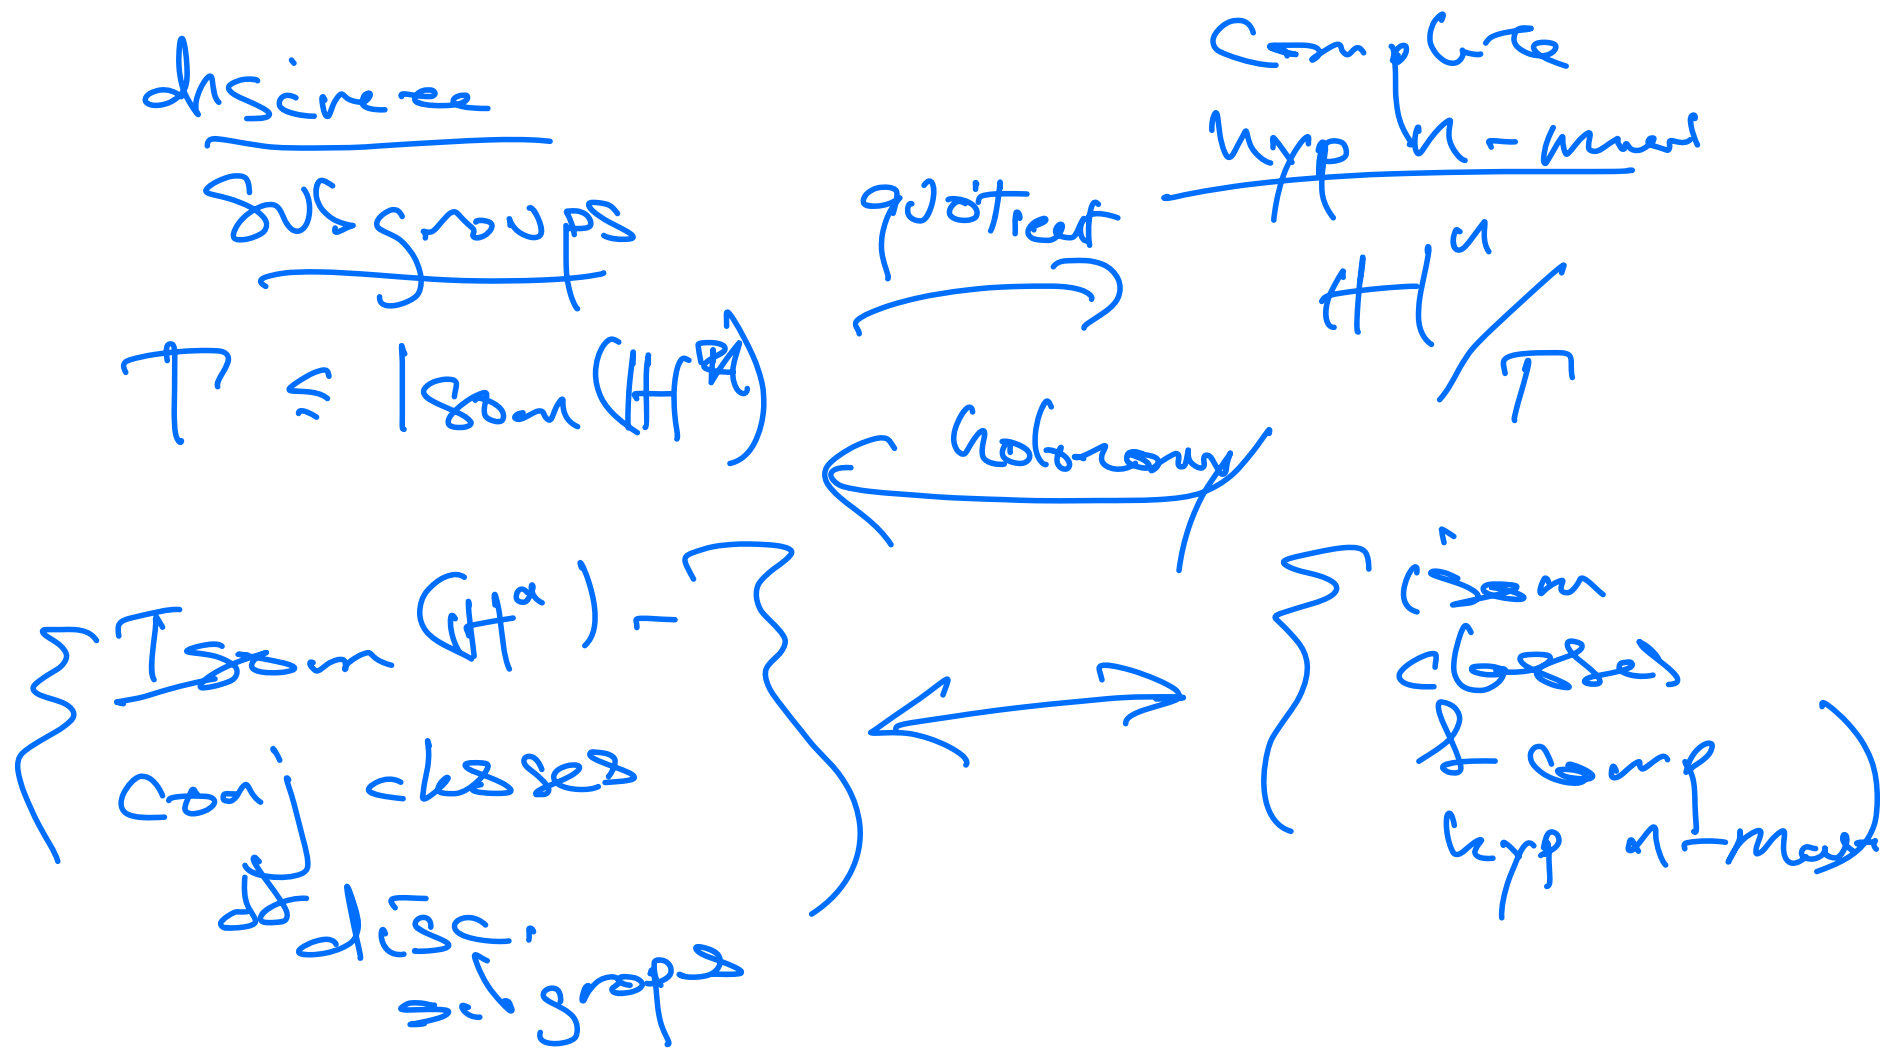 discrete
subgroups
T ≤ Isom(ℍⁿ)
quotient
complete
hyp n-man
ℍⁿ/T
holonomy
{ Isom(ℍⁿ)-
conj classes
of disc.
subgroups }
{ isom
classes
of comp
hyp n-man }